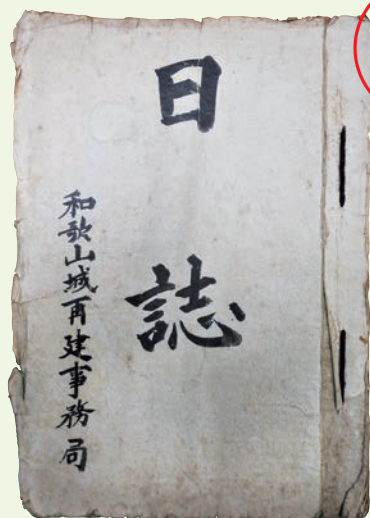 日誌
和歌山城再建事務局